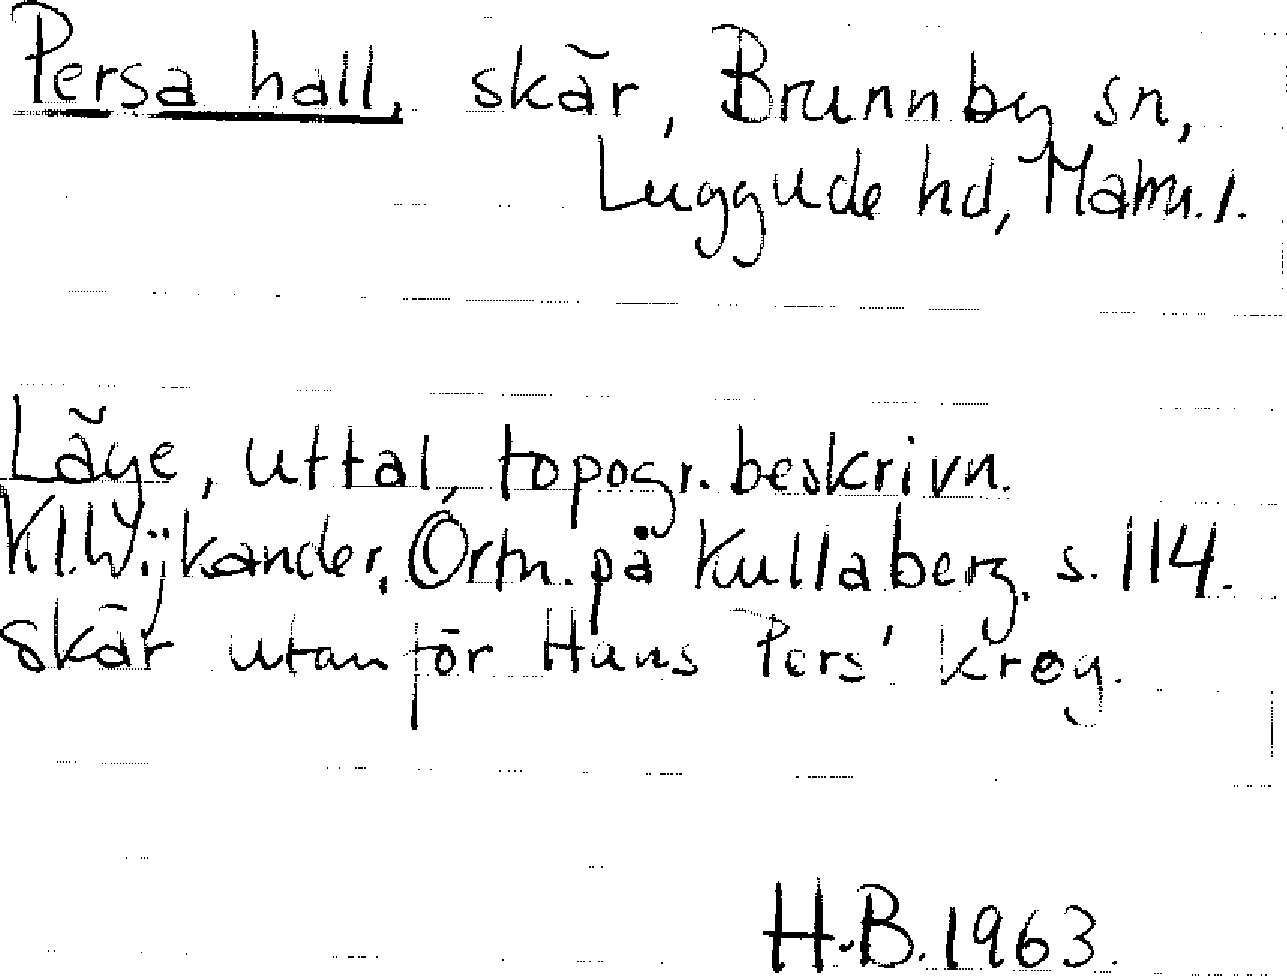 Persa hall, skär, Brunnby sn,
Luggude hd, Malm. l.
Läge, uttal, topogr. beskrivn.
Kl. Wijkander, Ortn. på Kullaberg. s. 114.
Skär utanför Hans Pers' krog.
H.B. 1963.